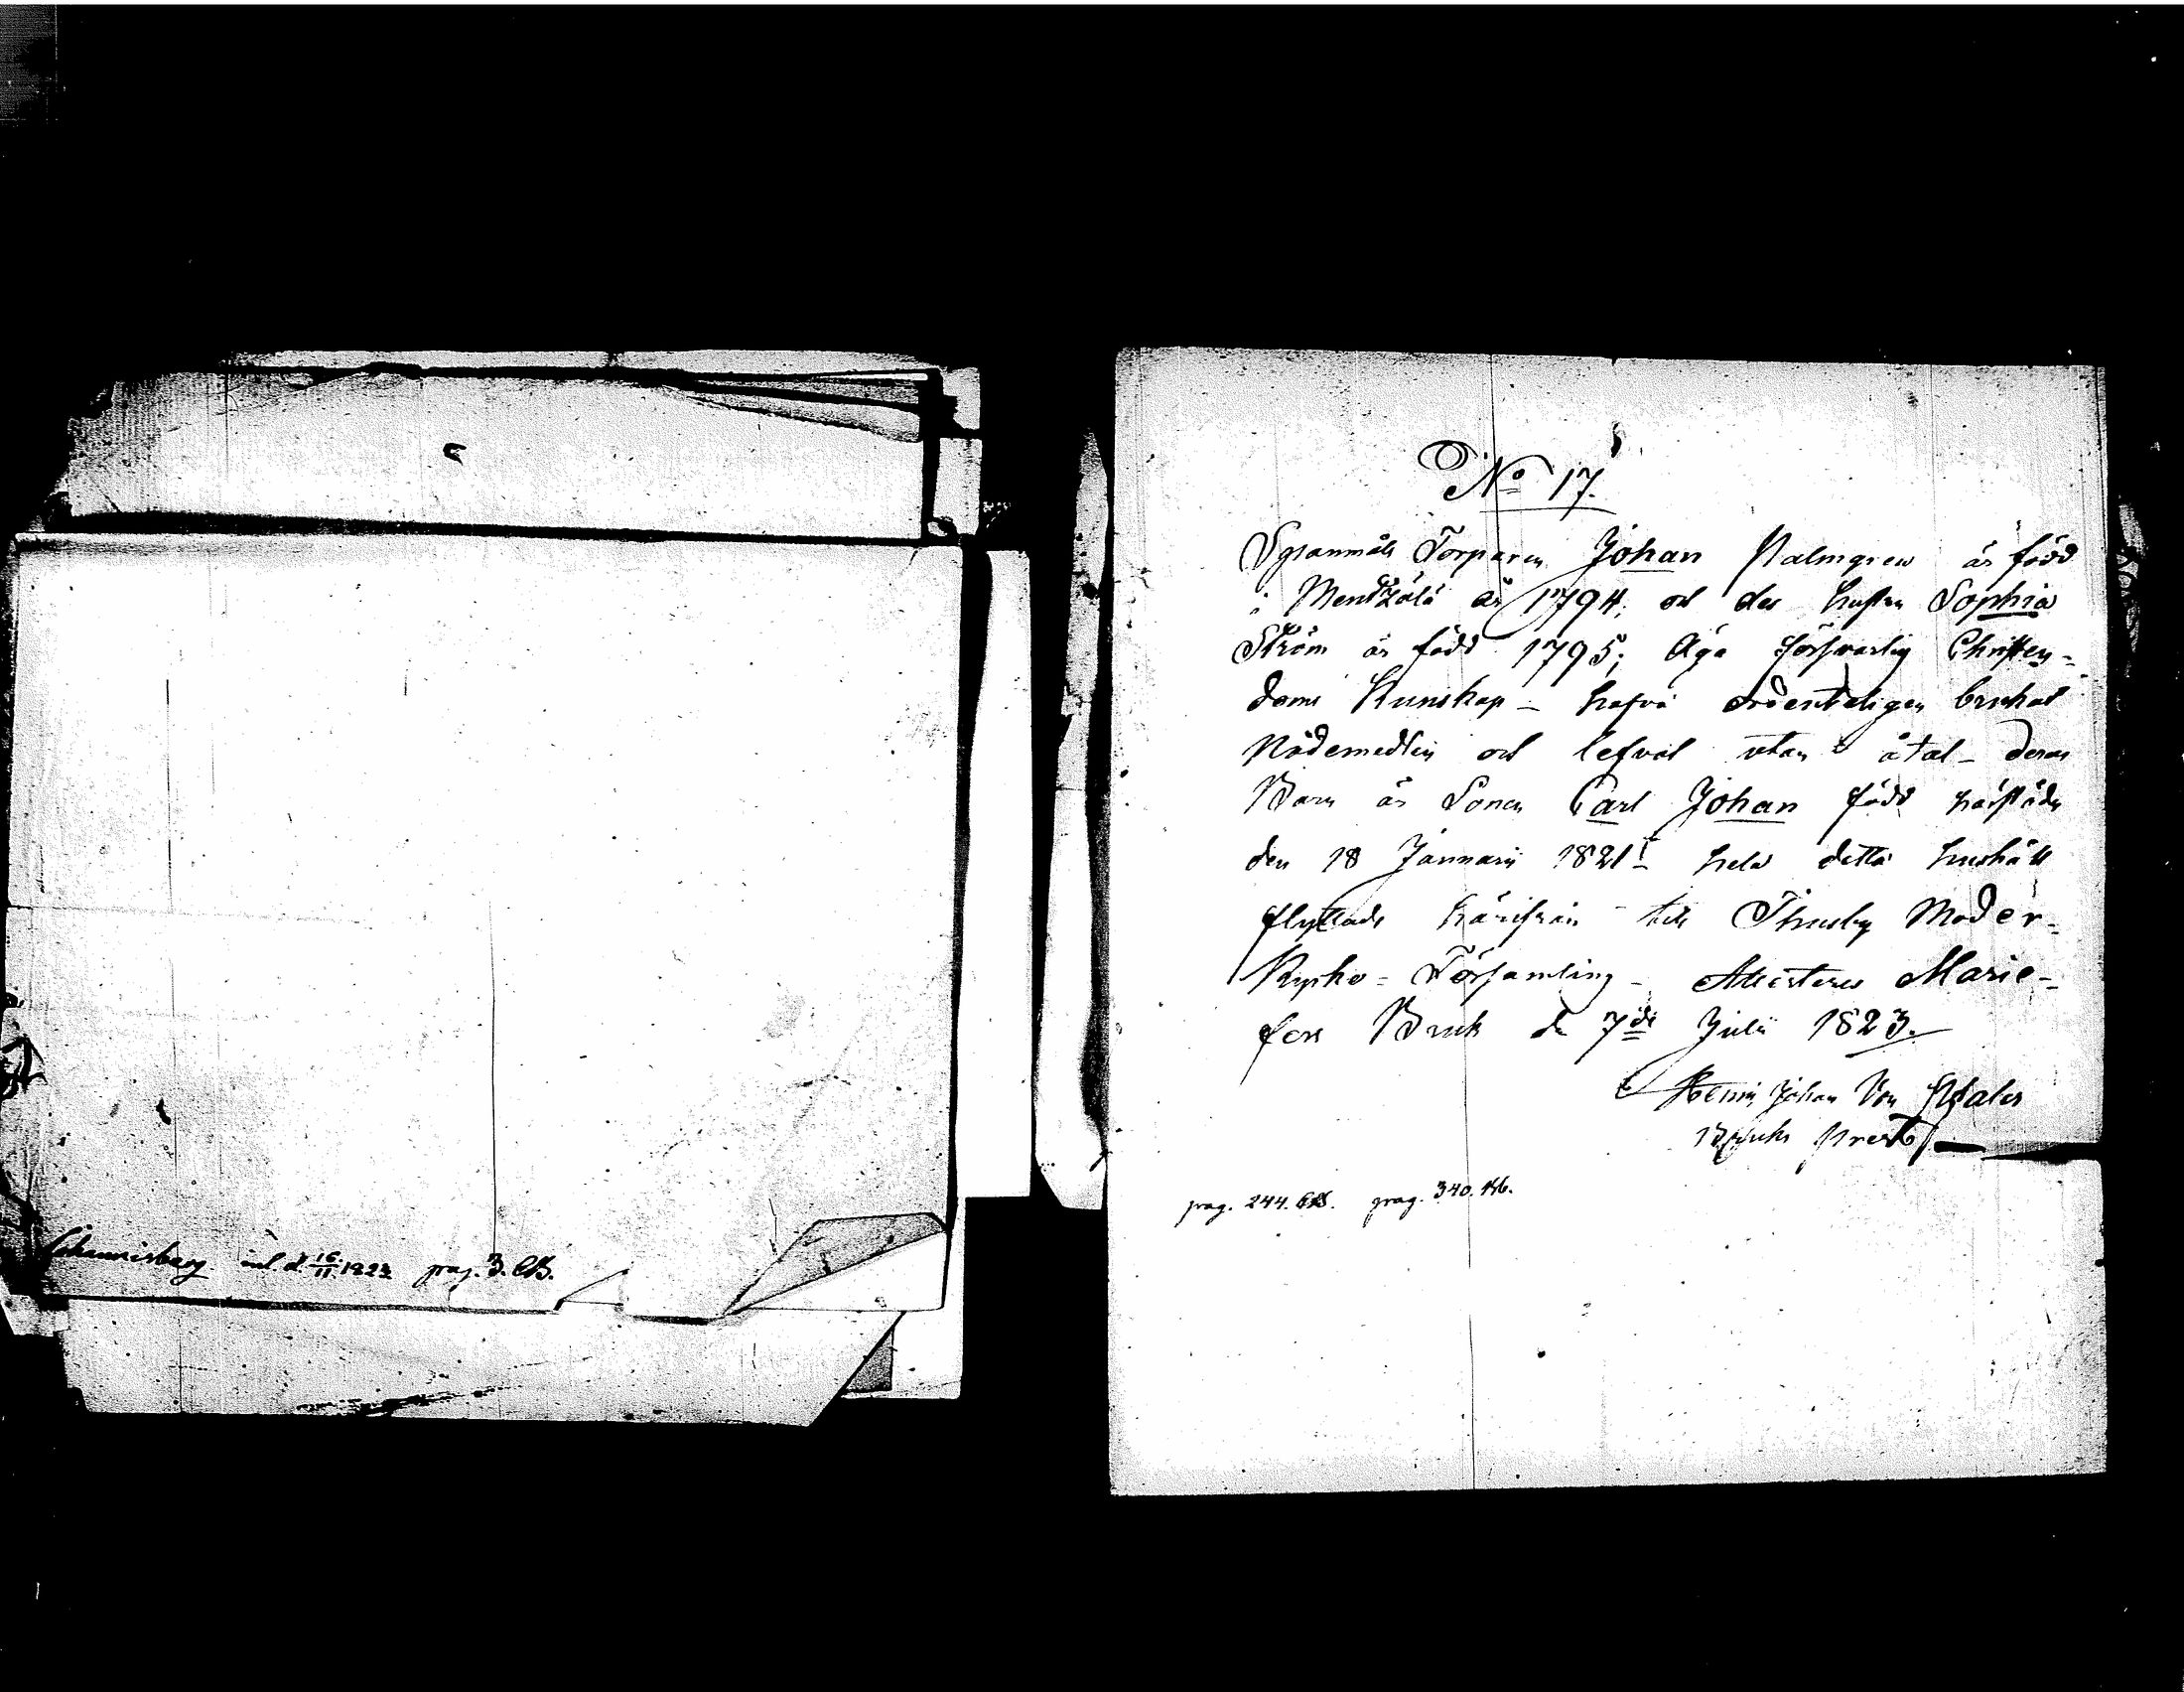 Johannisberg inl d. 16/11 1823 pag. 3. CB.
No 17.
Torparen Johan Palmgren är född
i Mentzälä år 1794; och des hustru Sophia
Ström är född 1795; Äga försvarlig Christen-
doms Kunskap – hafva ordenteligen brukat
Nådemedlen och lefvat utan åtal – deras
Barn är Sonen Carl Johan född härstädes
den 18 Januarii 1821 – hela detta hushåll
flyttade härifrån till Thusby Moder-
Kyrko-Församling – Attesteras Marie-
fors Bruk de 7de Julii 1823.
Henric Johan Von
Bruks Prest
pag. 244. CB. pag. 340. Hb.